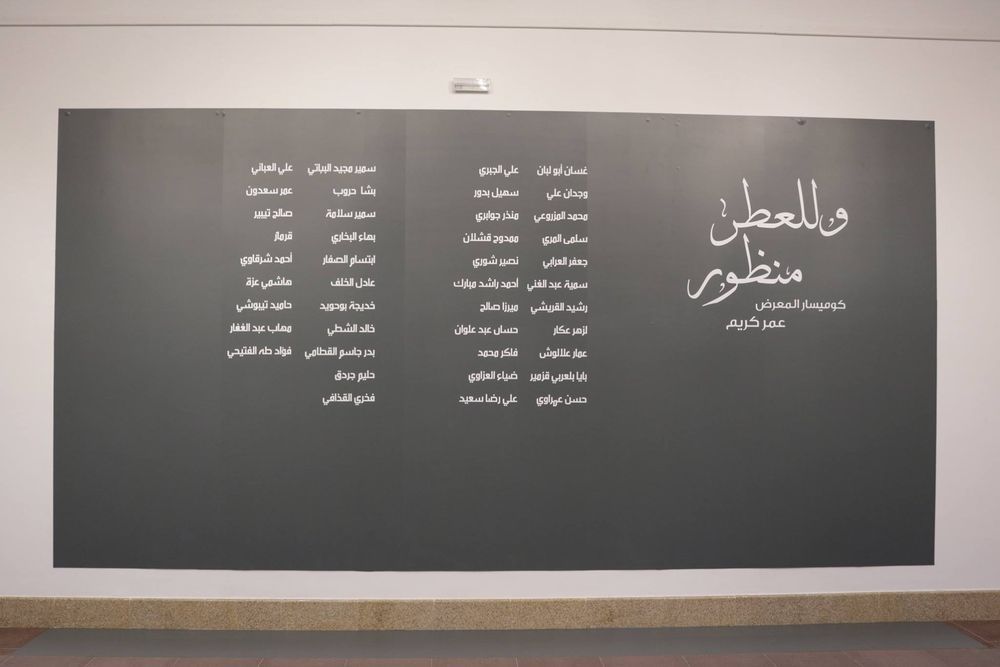 وللعطر
منظور
كوميسار المعرض
عمر كريم
غسان أبو لبان
وجدان علي
محمد المزروعي
سامي المري
جعفر العرابي
سمية عبد الغني
رشيد القريشي
ازهر عكار
عمار علالوش
بايا بلعربي قزمير
حسن عهراوي
علي الجبري
سهيل بدور
منذر جوابري
ممدوح قشلان
نصير شوري
احمد راشد مبارك
ميرزا صالح
حسان عبد علوان
فاكر محمد
ضياء العزاوي
علي رضا سعيد
سمير مجيد البياتي
بشا حروب
سمير سلامة
بهاء البخاري
ابتسام الصفار
عادل الخلف
خديجة بوحويد
خالد الشطي
بدر جاسم القطامي
حليم جردق
فخري القذافي
علي العباني
عمر سعدون
صالح تيبير
قرماز
أحمد شرقاوي
هاشمي عزة
حاميد تيبوشي
مهاب عبد الغفار
فؤاد طه الفتيحي